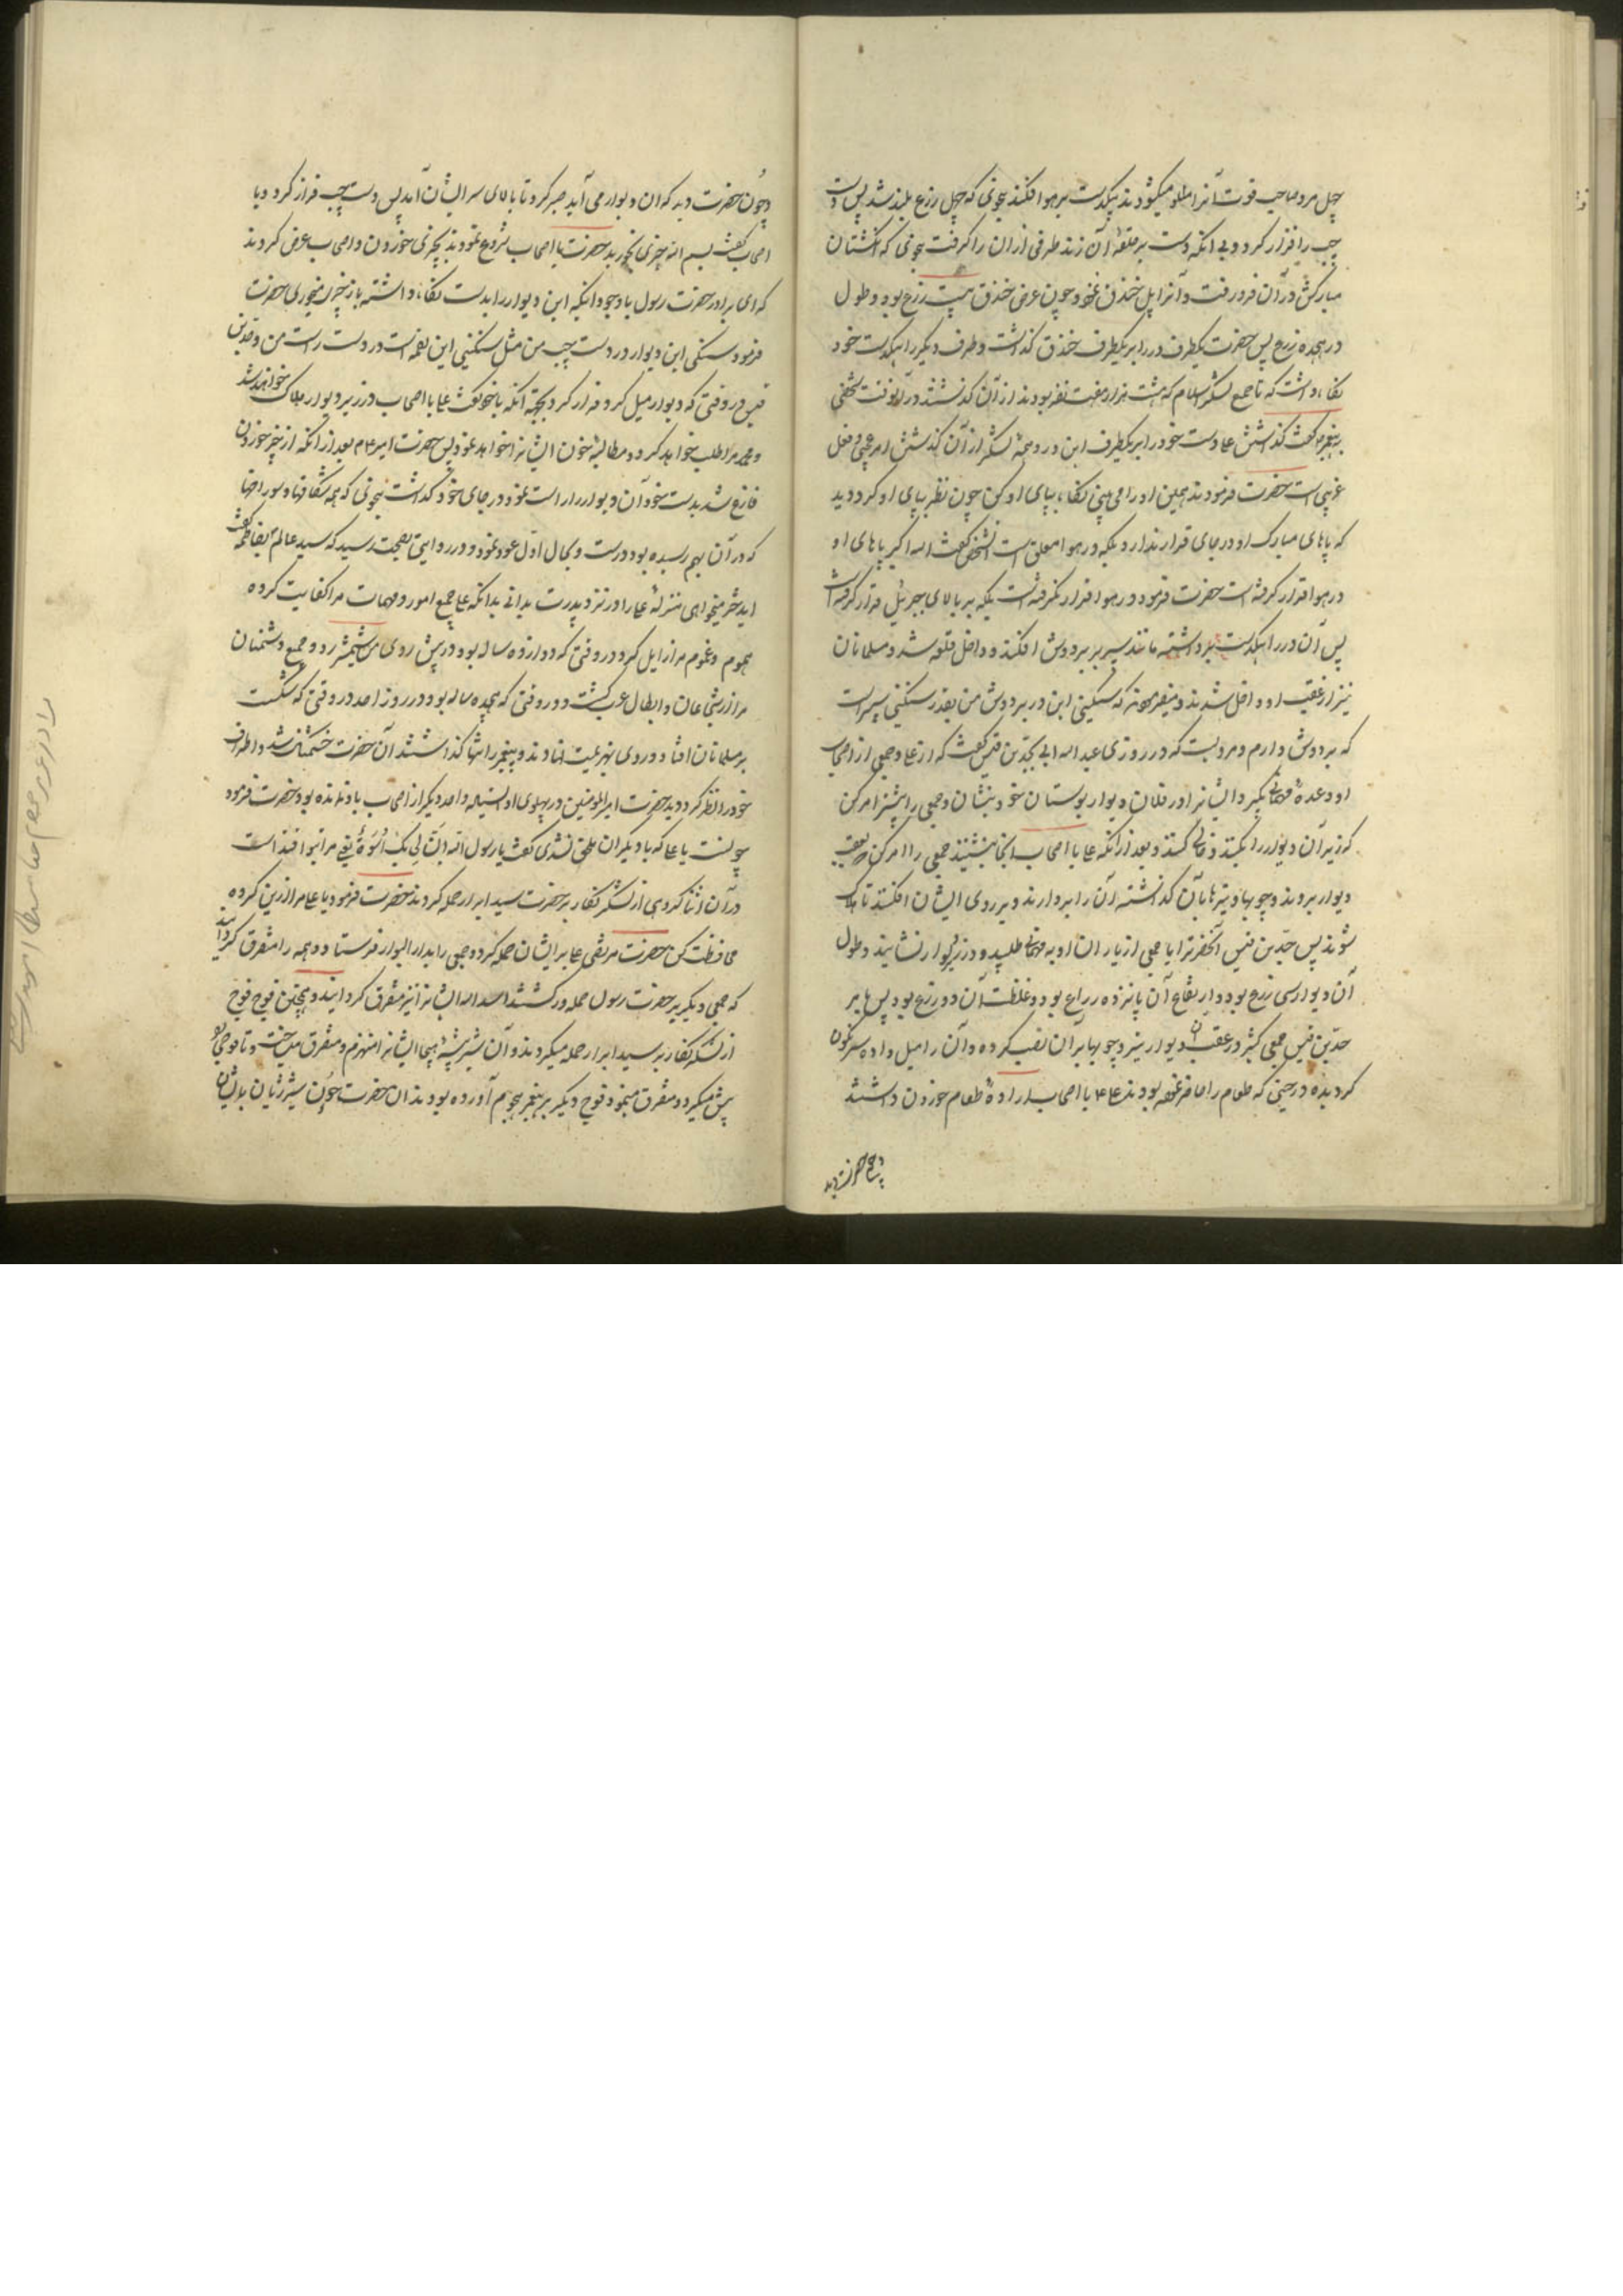 چهل مرد صاحب قوت آنرا میکشودند بیکدست بر هوا افکند بنحوی که چهل زرع بلند شد پس دست
چپ را فراز کرد و بی انکه دست بر حلقهٔ آن زند طرفی از ان را گرفت بنحوی که انگشتان
مبارکش در آن فرو رفت و آنرا پل خندق نمود و چون عرض خندق بیست زرع بود و طول
در هجده زرع پس حضرت یکطرف در را بر یکطرف خندق گذاشت و طرف دیگر را بیکدست خود
نگاه داشت که تا جمیع لشکر اسلام که هشت هزار و هفت نفر بودند از آن گذشتند در آنوقت شخصی
به پیغمبر گفت گذاشتن علی دست خود را بر یکطرف این در و همهٔ لشکر از آن گذشتن امر عجیبی و فعل
غریبی است حضرت فرمودند همین او را می بینی نگاه بپای او کن چون نظر بپای او کرد دید
که پاهای مبارک او در جای قرار ندارد بلکه در هوا معلق است آنشخص گفت الله اکبر پاهای او
در هوا قرار گرفته است حضرت فرمود در هوا قرار نگرفته است بلکه بر بالای جبرئیل قرار گرفته است
پس آن در را بیکدست برداشته مانند سپر بر دوش افکند و داخل قلعه شد و مسلمانان
نیز از عقب او داخل شدند و میفرمود که سنگینی این در بر دوش من بقدر سنگینی سپریست
که بر دوش دارم و مرویست که در روزی عبد الله ابی بجد بن قیس گفت که از علی و جمعی از اصحاب
او وعدهٔ مهمانی بگیر و ایشانرا در فلان دیوار بوستان خود بنشان و جمعی را پیشتر امر کن
که زیر آن دیوار را بکنند و خالی کنند و بعد از انکه علی با اصحاب انجا بنشینند جمعی را امر کن که بعقب
دیوار بروند و چوبها و تیرها بآن گذاشته آن را بر دارند و بر روی ایشان افکنند تا هلاک
شوند پس جد بن قیس آنحضرترا با جمعی از یاران او به مهمانی طلبید و در زیر دیوار نشانید و طول
آن دیوار سی زرع بود و ارتفاع آن پانزده زراع بود و غلظت آن دو زرع بود پس هابر
جد بن قیس جمعی کثیر در عقب دیوار تیر و چوبها بر آن نصب کرده و آن را میل داده سرنگون
گردیده در حینی که طعام را حاضر نموده بودند علی ع با اصحاب ارادهٔ طعام خوردن داشتند
و چون حضرت دید
و چون حضرت دید که ان دیوار می آید صبر کرد تا بالای سر ایشان آمد پس دست چپ فراز کرد و با
اصحاب گفت بسم الله چیزی بخورید حضرت با اصحاب شروع نمودند بچیزی خوردن و اصحاب عرض کردند
که ای برادر حضرت رسول با وجود انکه این دیوار را بدست نگاه داشته باز چیز میخوری حضرت
فرمود سنگینی این دیوار در دست چپ من مثل سنگینی این لقمه است در دست راست من و جد بن
قیس در وقتی که دیوار میل کرد فرار کرد بجهت انکه با خود گفت علی با اصحاب در زیر دیوار هلاک خواهد شد
و محمد مرا طلب خواهد کرد و مطالبهٔ خون ایشانرا خواهد نمود پس حضرت امیر ع بعد از انکه از چیز خوردن
فارغ شد بدست خود آن دیوار را راست نمود و در جای خود گذاشت بنحوی که همه شکافها و سوراخها
که در آن بهم رسیده بود درست و بحال اول عود نمود و در روایتی بصحت رسید که سید عالم بفاطمه گفت
ای دختر میخواهی منزلهٔ علی را در نزد پدرت بدانی بدانکه علی جمیع امور و مهمات مرا کفایت کرده
هموم و غموم مرا زایل کرد در وقتی که دوازده ساله بود در پیش روی من شمشیر زد و جمیع دشمنان
مرا از شجاعان و ابطال عرب کشت در وقتی که هجده ساله بود و در روز احد در وقتی که شکست
بر مسلمانان افتاد و روی بهزیمت نهادند و پیغمبر را تنها گذاشتند آن حضرت خشمناک شد و اطراف
خود را نظر کرد دید حضرت امیر المؤمنین در پهلوی او ایستاده و احد دیگر از اصحاب با او نمانده بود حضرت فرمود
چونست یا علی که با دیگران ملحق نشدی گفت یا رسول الله انّ لی بک اُسوَةٌ یعنی مرا بتو اقتداست
در آن اثنا گروهی از لشکر کفار بر حضرت سید ابرار حمله کردند حضرت فرمود یا علی مرا از این گروه
محافظت کن حضرت مرتضی علی بر ایشان حمله کرد و جمعی را بدار البوار فرستاد و همه را متفرق گردانید
که جمعی دیگر بر حضرت رسول حمله ور گشتند اسد الله ایشانرا نیز متفرق گردانید و همچنین فوج فوج
از لشکر کفار بر سید ابرار حمله میکردند و آن شیر بیشهٔ هیجا ایشانرا منهزم و متفرق میساخت و تا فوجی را
پیش میکرد و متفرق مینمود فوج دیگر بر پیغمبر هجوم آورده بودند ان حضرت چون شیر ژیان بایشان